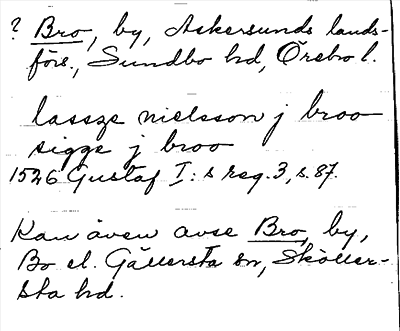 ? Bro, by, Askersunds lands-
förs., Sundbo hd, Örebro l.
lassze nielsson j broo
sigge j broo
1526 Gustaf I:s reg. 3, s. 87.
Kan även avse Bro, by,
Bo el. Gällersta sn, Sköller-
sta hd.